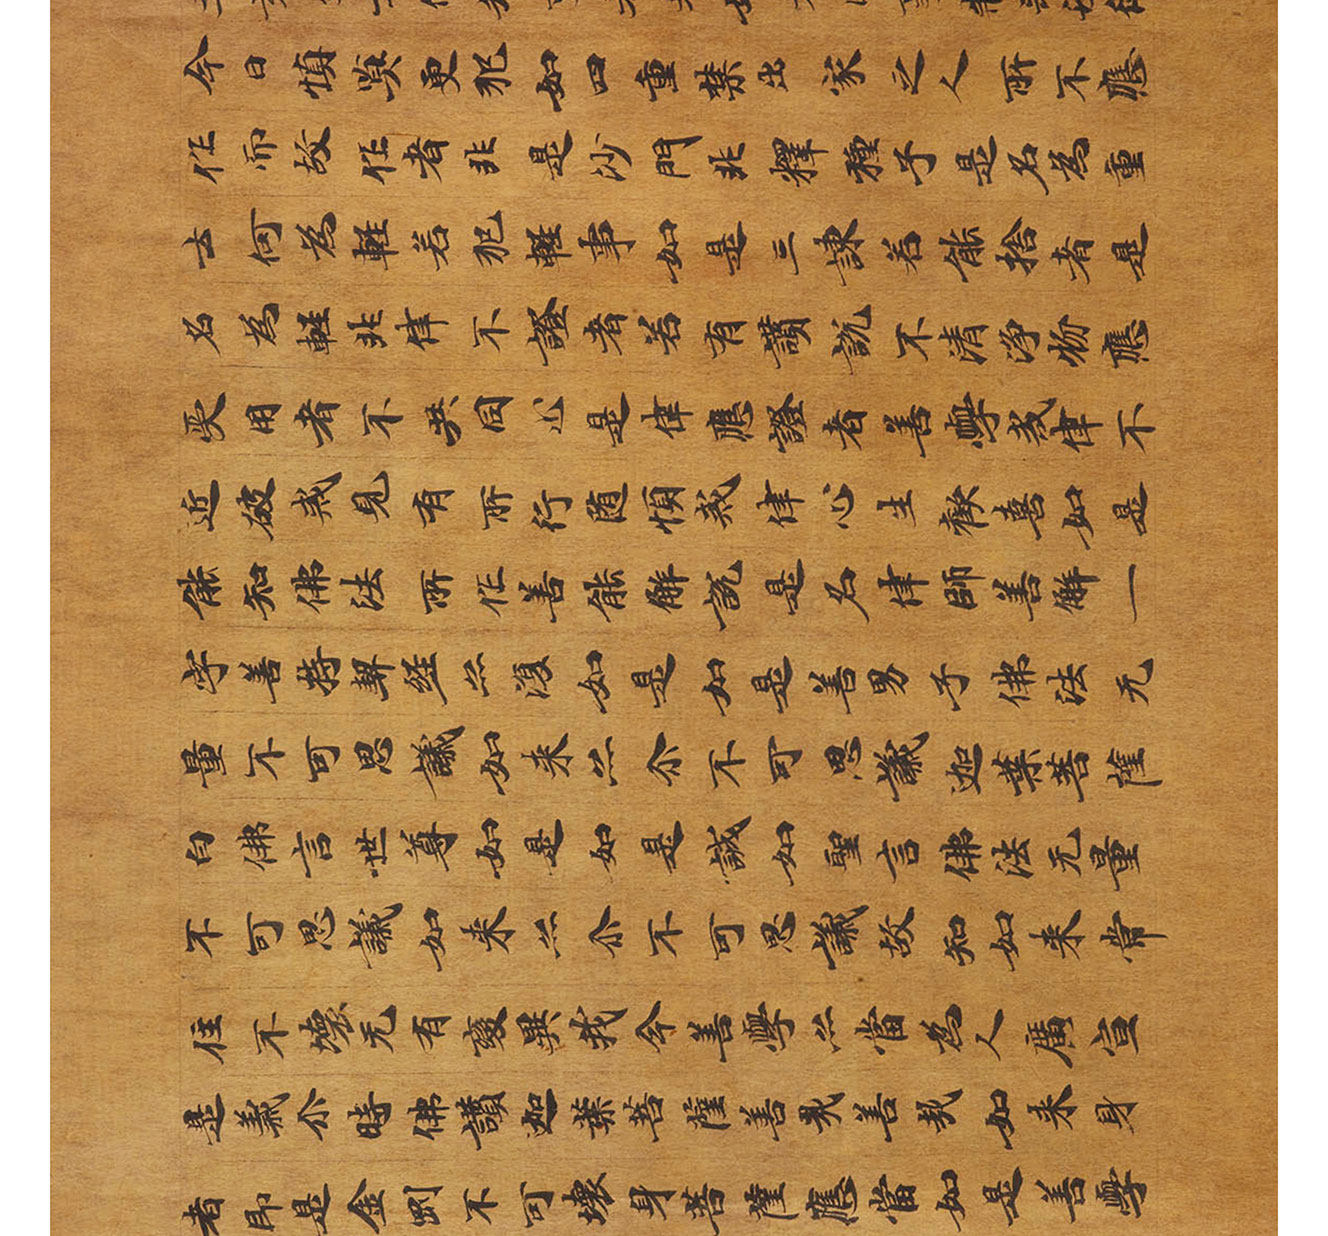 今日慎莫更犯如四重禁出家之人所不應
作而故作者非是沙門非釋種子是名為重
云何為輕若犯輕事如是三諫若能捨者是
名為輕非律不證者若有讚說不清淨物應
受用者不共同止是律應證者善學戒律不
近破戒見有所行随慎戒律心生歡喜如是
能知佛法所作善能解說是名律師善解一
字善持契經亦復如是如是善男子佛法无
量不可思議如来亦尒不可思議迦葉菩薩
白佛言世尊如是如是誠如聖言佛法无量
不可思議如来亦尒不可思議故知如来常
住不壞无有變異我今善學亦當為人廣宣
是義尒時佛讚迦葉菩薩善哉善哉如来身
者即是金剛不可壞身菩薩應當如是善學